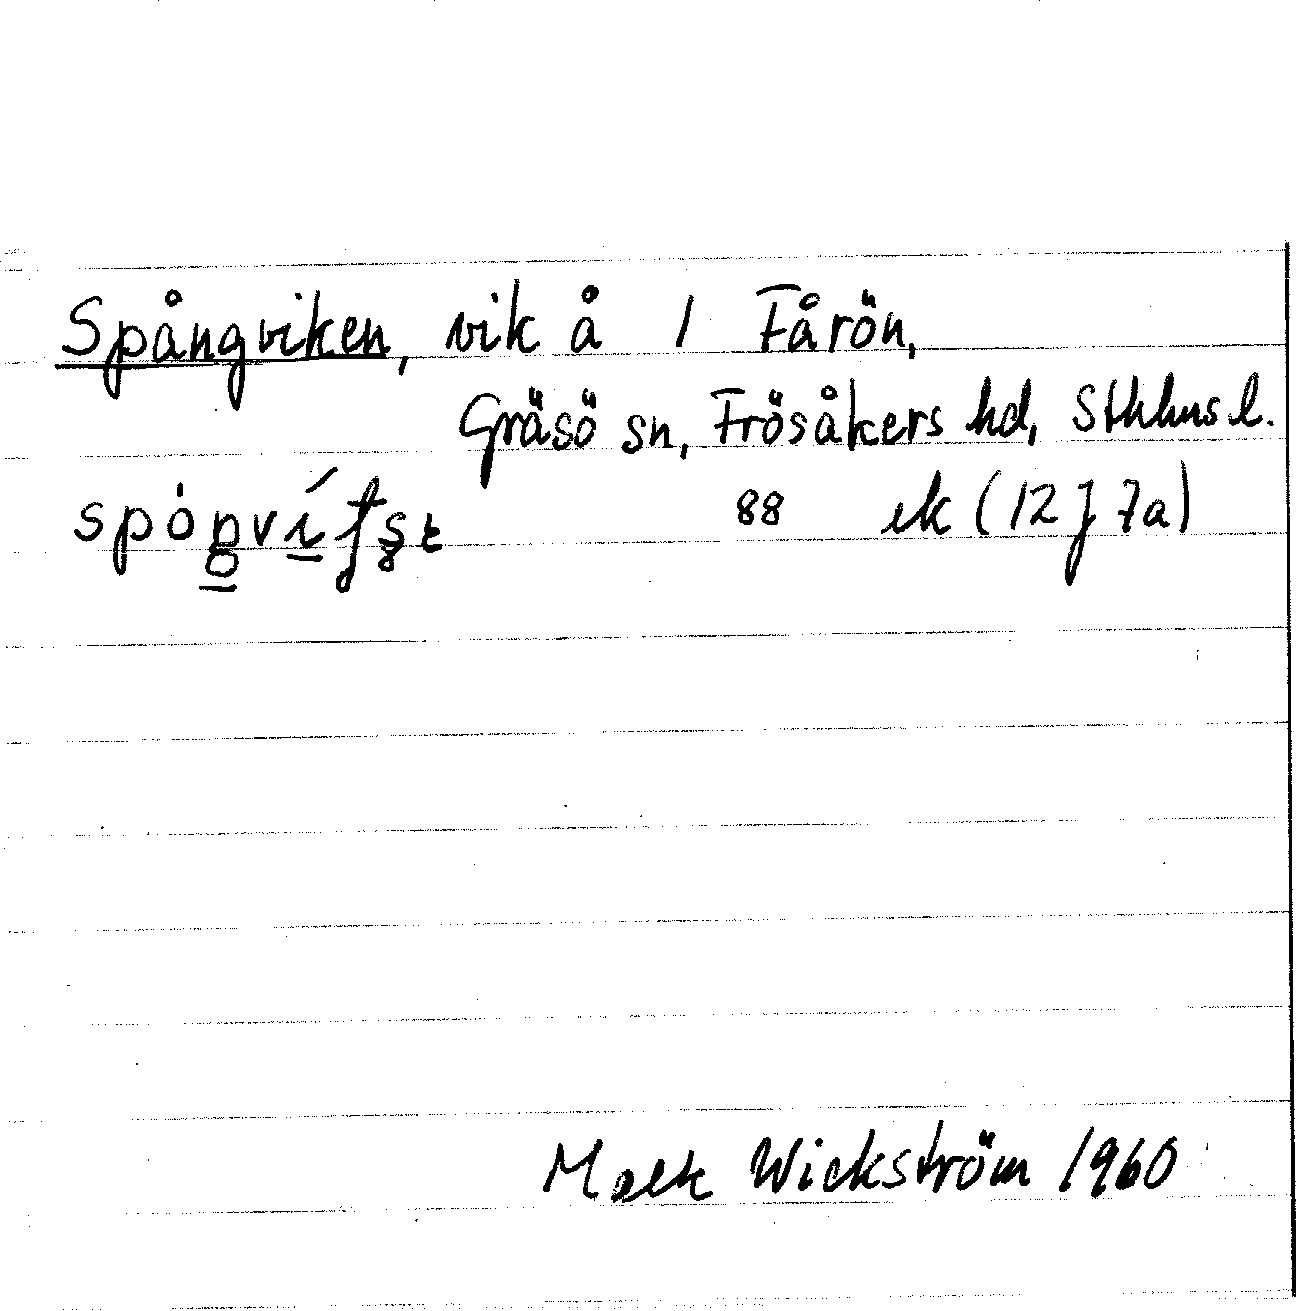 Spångviken, vik å 1 Fårön,
Gräsö sn, Frösåkers hd, Sthlms l.
88 ek (12 J 7a)
Wickström 1960